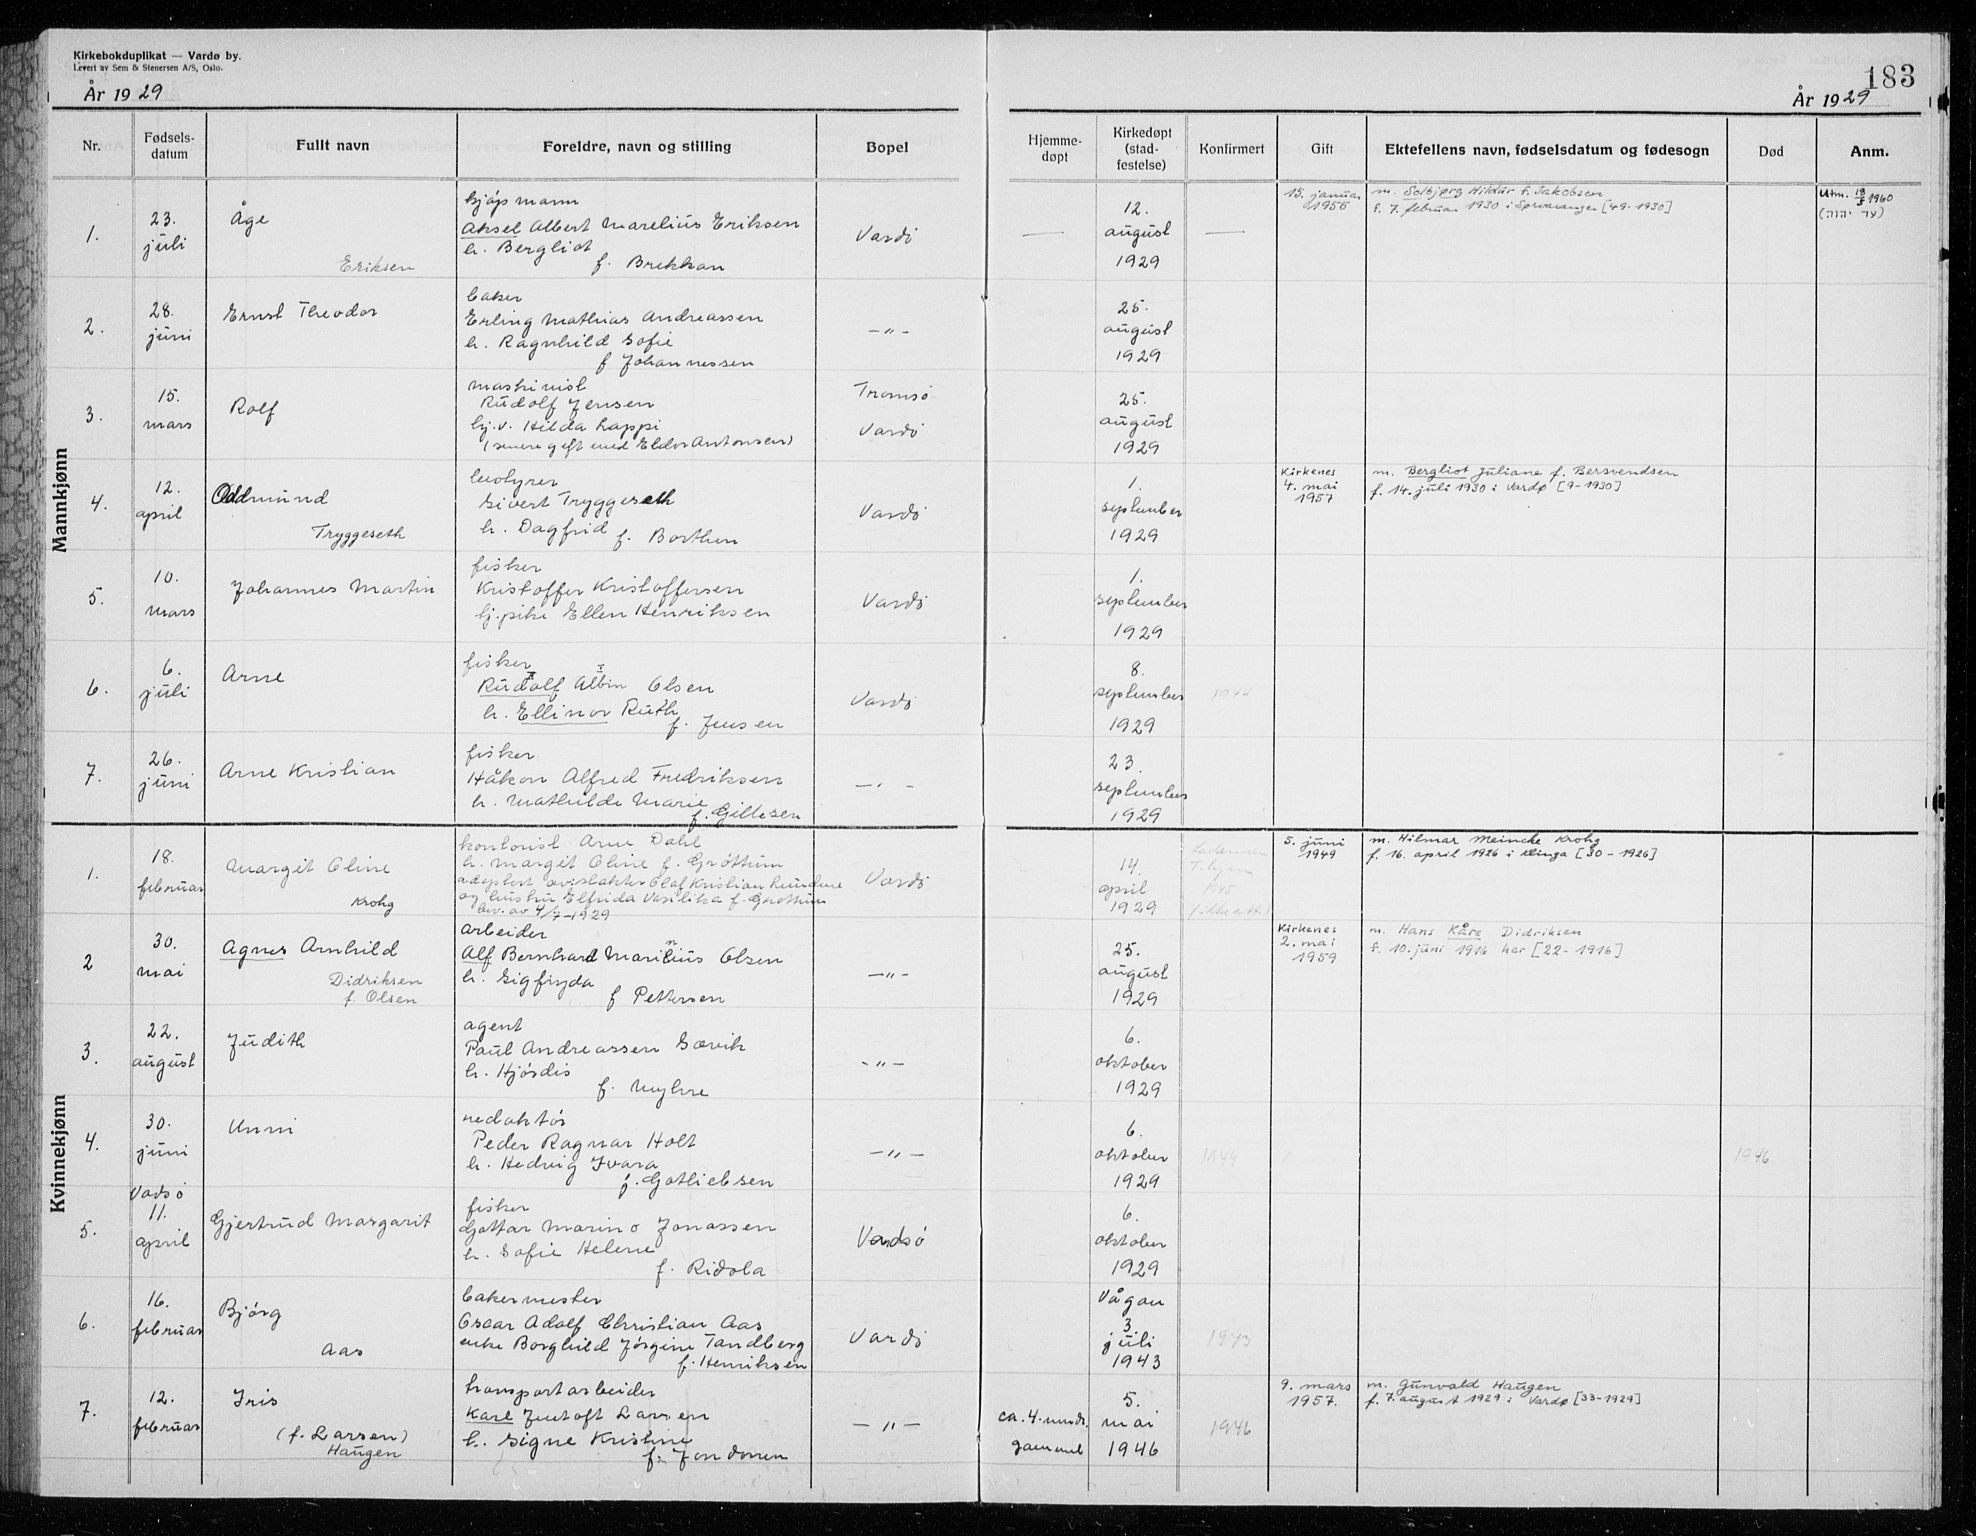 Kirkebokduplikat — Vardø by.
Levert av Sem & Stenersen A/S, Oslo.
År 1929
183
År 1929
Nr.
Fødsels-
datum
Fullt navn
Foreldre, navn og stilling
Bopel
Hjemme-
døpt
Kirkedøpt
(stad-
festelse)
Konfirmert
Gift
Ektefellens navn, fødselsdatum og fødesogn
Død
Anm.
Mannkjønn
1.
23.
juli
Åge
Eriksen
kjøpmann
Aksel Albert Marelius Eriksen
h. Bergliot
f. Brekkan
Vardø
—
12.
august
1929
—
15. januar
1955
m. Solbjørg Hildur f. Jakobsen
f. 7. februar 1930 i Sørvaranger [49-1930]
Utm. 19/5 1960
(עד יהוה)
2.
28.
juni
Ernst Theodor
baker
Erling Mathias Andreassen
h. Ragnhild Sofie
f Johannessen
—"—
25.
august
1929
3.
15.
mars
Rolf
maskinist
Rudolf Jensen
hj.v. Hilda Lappi
(senere gift med Eldor Antonsen)
Tromsø
Vardø
25.
august
1929
4.
12.
april
Oddmund
Tryggeseth
Sivert Tryggeseth
h. Dagfrid
f. Borthen
Vardø
1.
september
1929
Kirkenes
4. mai
1957
m. Bergliot Juliane f. Bersvendsen
f. 14. juli 1930 i Vardø [9-1930]
5.
10.
mars
Johannes Martin
fisker
Kristoffer Kristoffersen
hj.pike Ellen Henriksen
Vardø
1.
september
1929
6.
6.
juli
Arne
fisker
Rudolf Albin Olsen
h. Ellinor Ruth
f. Jensen
Vardø
8.
september
1929
1944
7.
26.
juni
Arne Kristian
fisker
Håkon Alfred Fredriksen
h. Mathilde Marie
f. Gillesen
—"—
23.
september
1929
Kvinnekjønn
1.
18.
februar
Margit Oline
Krohg
kontorist Arne Dahl
h. Margit Oline f. Grøttum
adoptert av Olaf Kristian
og hustru Elfrida Vasilika f. Grøttum
bev. av 4/7-1929
Vardø
14.
april
1929
1945
5. juni
1949
m. Hilmar Meincke Krohg
f. 16. april 1926 i Klinga [30-1926]
2
30.
mai
Agnes Arnhild
Didriksen
f. Olsen
arbeider
Alf Bernhard Marinius Olsen
h. Sigfryda
f Pettersen
—"—
25.
august
1929
Kirkenes
2. mai
1959
m. Hans Kåre Didriksen
f. 10. juni 1916 her [22-1916]
3.
22.
august
Judith
agent
Paul Andreassen Sævik
h. Hjørdis
f. Myhre
—"—
6.
oktober
1929
4.
30.
juni
Unni
redaktør
Peder Ragnar Holt
h. Hedvig Ivara
f. Gotliebsen
—"—
6.
oktober
1929
1944
1946
5.
Vadsø
11.
april
Gjertrud Margarit
fisker
Gottar Marino Jonassen
h. Sofie Helene
f. Ridola
Vadsø
6.
oktober
1929
6.
16.
februar
Bjørg
Aas
bakermester
Oscar Adolf Christian Aas
enke Borghild Jørgine Tandberg
f. Henriksen
Vardø
Vågan
3.
juli
1943
1943
7.
12.
februar
Iris
(f. Larsen)
Haugen
transportarbeider
Karl Jentoft Larsen
h. Signe Kristine
—"—
ca. 4. mndr.
gammel
5.
mai
1946
1946
9. mars
1957.
m. Gunvald Haugen
f. 7. august 1929 i Vardø [33-1929]